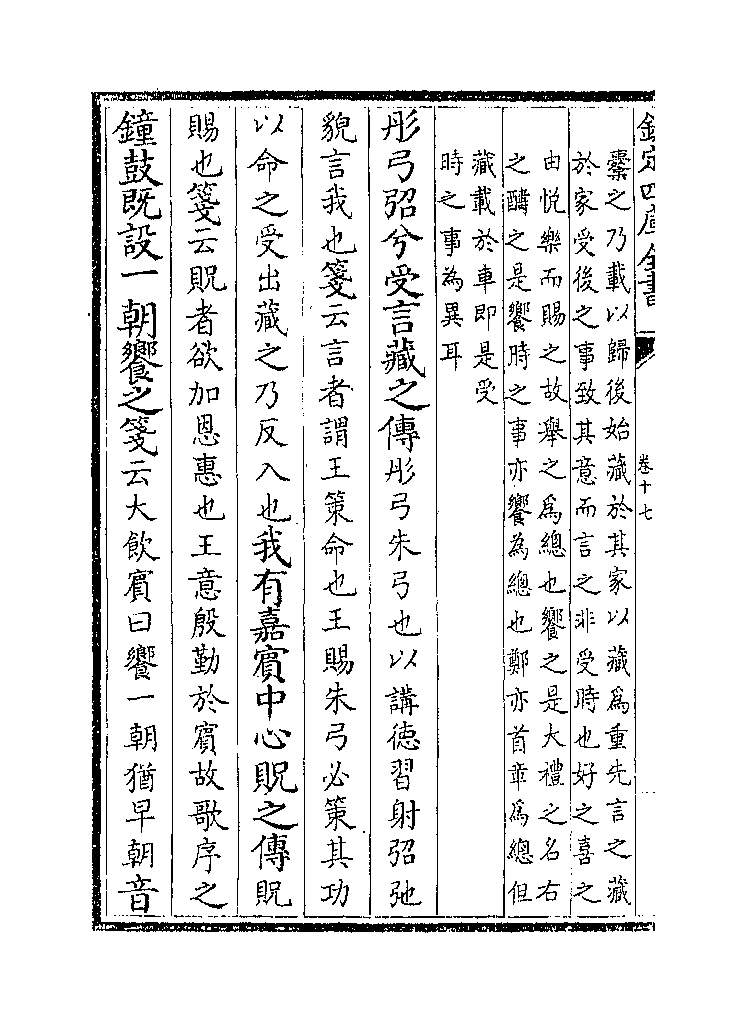 欽定四庫全書
卷十七
櫜之乃載以歸後始藏於其家以藏爲重先言之藏
於家受後之事致其意而言之非受時也好之喜之
由悦樂而賜之故舉之爲總也饗之是大禮之名右
之醻之是饗時之事亦饗為總也鄭亦首章爲總但
藏載於車即是受
時之事為異耳
彤弓弨兮受言藏之傳彤弓朱弓也以講德習射弨弛
貌言我也箋云言者謂王策命也王賜朱弓必策其功
以命之受出藏之乃反入也我有嘉賓中心貺之傳貺
賜也箋云貺者欲加恩惠也王意殷勤於賓故歌序之
鐘鼓既設一朝饗之箋云大飲賓曰饗一朝猶早朝音